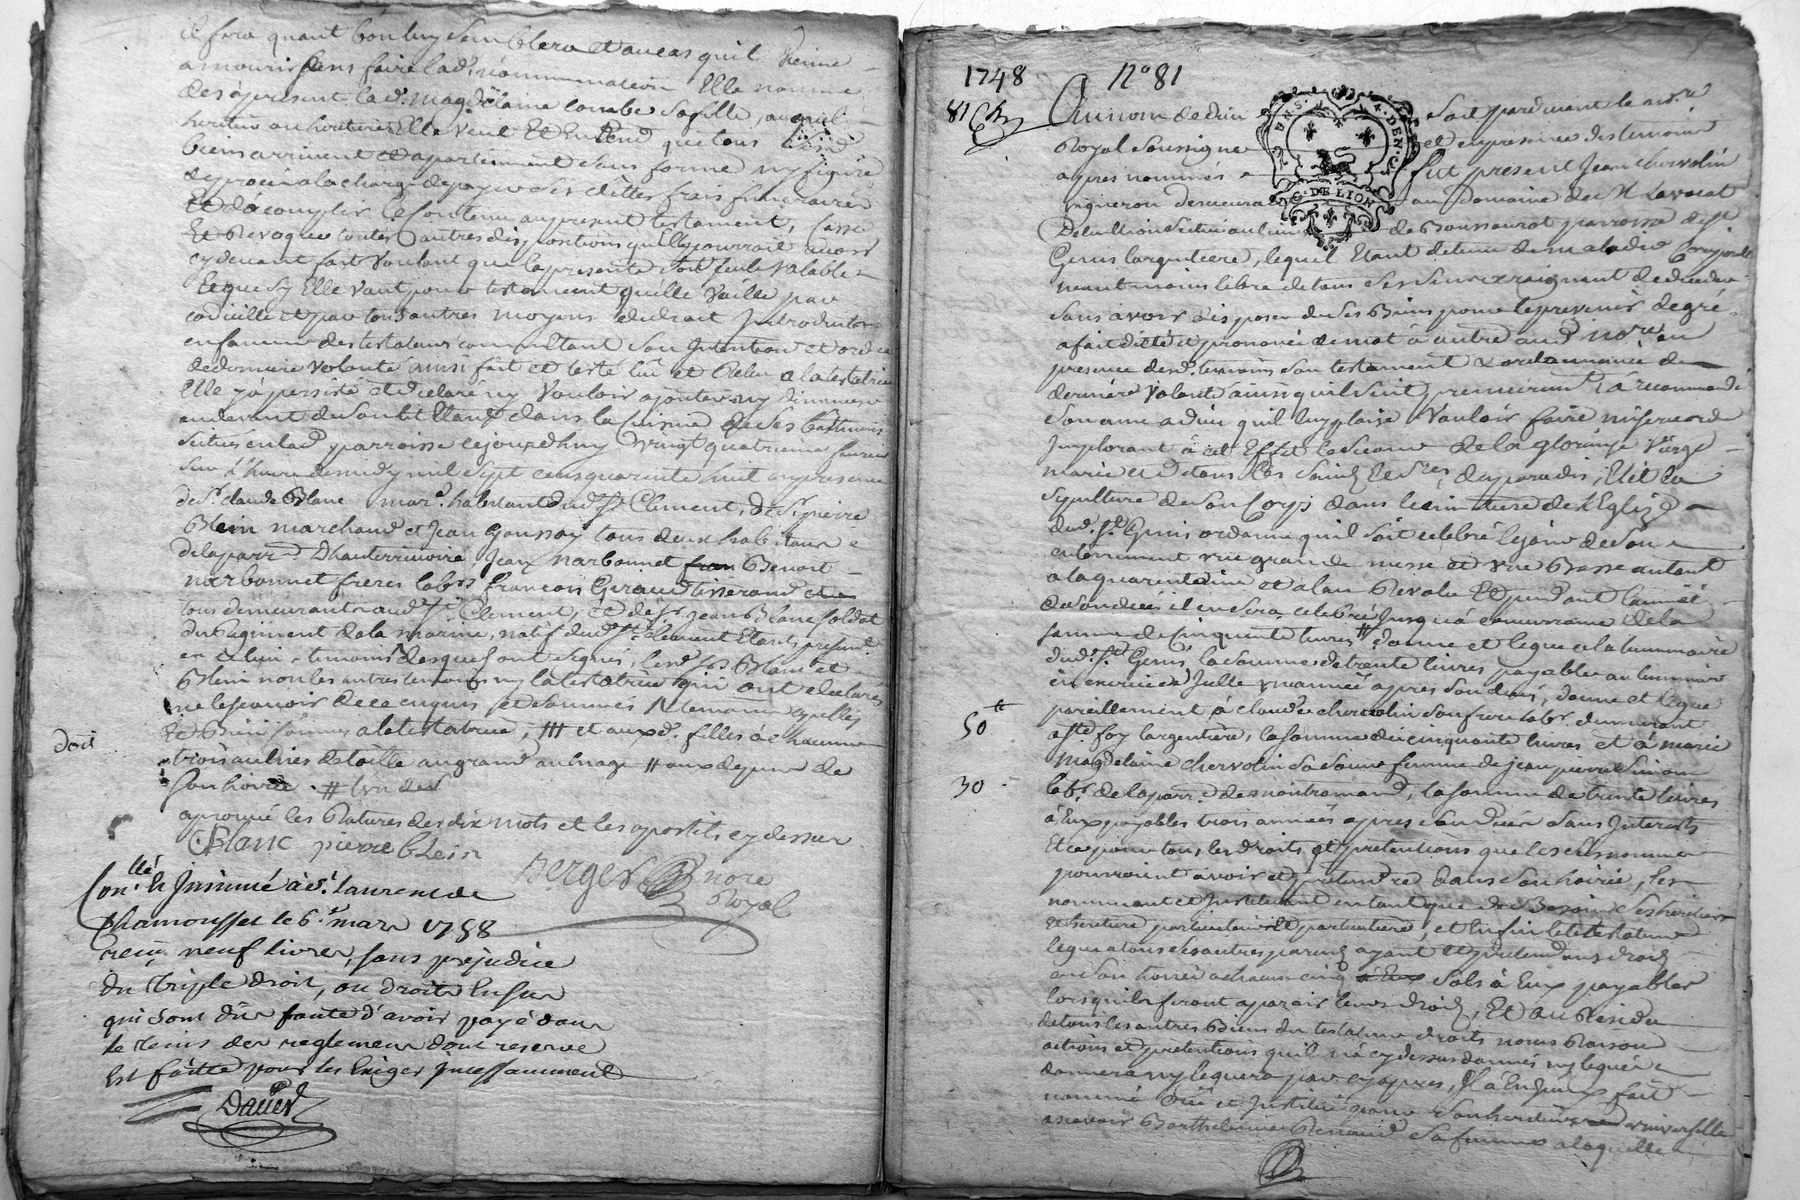 il sera quant bon luy semblera et au cas quil vienne
a mourir sans faire lad. nommination Elle nomme
des apresent lad. magdelaine combe sa fille, auquel
heritier ou heritiere Elle veut Et Entend que tous sesd.
biens arrivent et apartiennent sans forme ny figure
de procès a la charge de payer ses dettes frais funeraires
Et d'acomplir le contenu au present testament, Casse
Et Revoque toutes autres dispositions qu'Elle pourroit avoir
cy devant fait voulant que la presente soit seule valable
lequel Elle vaut pour testament qu'elle vaille par
codicille et par tous autres moyens de droit Introduits
en faveur des testateurs comportant son Intention et ordce
de derniere volonté ainsi fait et testé lû et Relu a la testatrice
Elle y à persisté et declaré ny vouloir ajouter ny diminuer
au devant de son lit Etant dans la cuisine de ses batimens
situés en lad. parroisse cejourd'huy vingt quatrieme fevrier
sur l'heure de midy mil sept cens quarente huit en presence
de Sr. claude Blanc mard. habitant dud. St. Clement, de Sr. pierre
Blein marchand et Jean Goussay tous deux habitans
de la parr. d'hauterrivoire, Jean Narbonnet Benoit
narbonnet freres labrs. françois Giraud tisserand
tous demeurants aud. St. Clement, et de Sr. Jean Blanc soldat
du Regiment de la marine, natif dud. St. Clement Etant present
en ce lieu, temoins desquels ont signés, lesd. Srs. Blanc et
Blein non les autres temoins ny la testatrice qui ont declarés
ne le scavoir de ce enquis et sommés
a la testatrice, et auxd. filles à chacune
doit
trois aulnes de toille au grand aulnage # aux depens de
son hoirie . #
aprouvé les Ratures des dix mots et les apostils cy dessus
Blanc pierre blein
Berger nore
Royal
Conllé. & Insinué à St. laurent de
Chamousset le 6e. mars 1748
reçu neuf livres, sans prejudice
du triple droit, ou droits En sus
qui sont dûs faute d'avoir payé dans
le tems des reglemens dont reserve
Est faitte pour les Exiger Incessamment
Daver
1748 No 81
81
Au nom de dieu soit pardevant le nore
Royal Soussigné et en presence des temoins
apres nommés fut present Jean chervolin
vigneron demeurant au Domaine de Mr Lavocat
de Boussauvot parroisse de St
Genis largentiere, lequel Etant detenu de maladie Corporelle
neantmoins libre de tous ses sens craignant de deceder
sans avoir disposer de ses Biens pour le prevenir de gré
a fait dicté et prononcé de mot à autre aud. nore en
presence desd. temoins son testament & ordonnance de
derniere volonté ainsi quil suit, premierement a recommandé
son ame a dieu quil luy plaise vouloir faire misericorde
Implorant à cet Effet le secours de la glorieuse vierge
marie et de tous les saints et stes. de paradis, Elit la
sepulture de son Corps dans le cimetiere de l'Eglize
dud. St. Genis ordonne qu'il soit celebré le jour de son
enterrement une grande messe et une Basse autant
a la quarentaine et a l'an Revolu Et pendant l'année
de son deces il en sera celebré jusqu'à concurrance de la
somme de cinquante livres # donne et legue a la luminaire
dud. St. Genis la somme de trente livres payable au luminier
en exercice Icelle année apres son deces, donne et legue
pareillement à claude chervolin son frere labr. demeurant
50tt
a ste foy largentiere, la somme de cinquante livres et à marie
magdelaine chervolin sa soeur femme de jean pierre Simon
30
labr. de la parr. de montromand, la somme de trente livres
à Eux payables trois années apres son deces sans Interests
Et ce pour tous les droits et pretentions que les susnommés
pourroient avoir et pretendre dans son hoirie, les
nommant et Instituant en tant que de Besoin ses heritiers
et heritiere particuliers et particuliere, et Enfin led. testateur
legue a tous ses autres parens ayant et pretendant droit
en son hoirie a chacun cinq sols à Eux payables
lorsqu'ils feront aparoir leurs droits, Et au Residu
de tous les autres Biens du testateur droits noms Raisons
actions et pretentions qu'il n'a cy dessus donnés ny legués
donnera ny leguera par cy apres, Il à Enfin fait
nommé créé et Institué pour son heritiere universelle
ascavoir Barthelemie Renaud sa femme a laquelle
GEN. DE LION